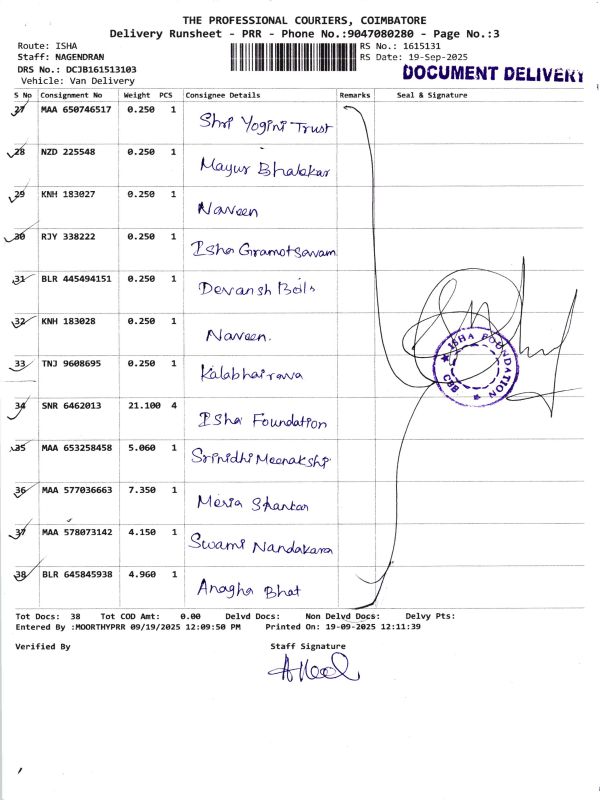 THE PROFESSIONAL COURIERS, COIMBATORE
Delivery Runsheet - PRR - Phone No.:9047080280 - Page No.:3
Route: ISHA RS No.: 1615131
Staff: NAGENDRAN RS Date: 19-Sep-2025
DRS No.: DCJB161513103 DOCUMENT DELIVERY
Vehicle: Van Delivery
S No Consignment No Weight PCS Consignee Details Remarks Seal & Signature
27 MAA 650746517 0.250 1 Shri Yogini Trust
28 NZD 225548 0.250 1 Mayur Bhalekar
29 KNH 183027 0.250 1 Naveen
30 RJY 338222 0.250 1 Isha Gramotsavam
31 BLR 445494151 0.250 1 Devansh
32 KNH 183028 0.250 1 Naveen.
33 TNJ 9608695 0.250 1 Kalabhairava
34 SNR 6462013 21.100 4 Isha Foundation
35 MAA 653258458 5.060 1 Srinidhi Meenakshi
36 MAA 577036663 7.350 1 Shankar
37 MAA 578073142 4.150 1 Swami Nandakara
38 BLR 645845938 4.960 1 Anagha Bhat
ISHA FOUNDATION
CBE
Tot Docs: 38 Tot COD Amt: 0.00 Delvd Docs: Non Delvd Docs: Delvy Pts:
Entered By :MOORTHYPRR 09/19/2025 12:09:50 PM Printed On: 19-09-2025 12:11:39
Verified By Staff Signature